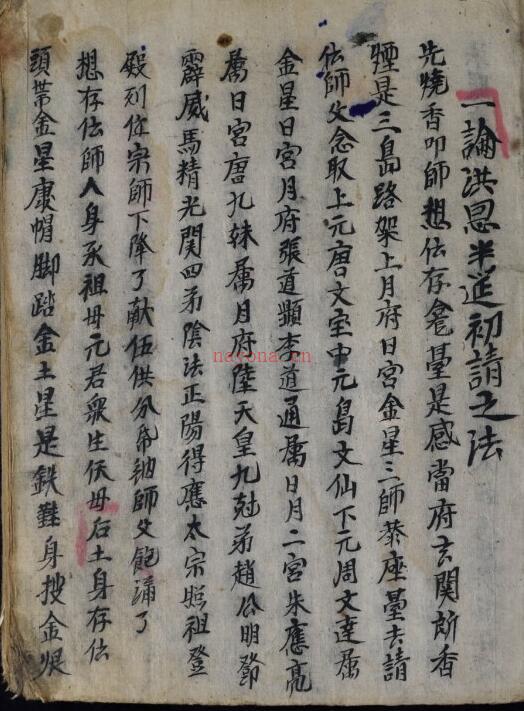 一論洪恩半筵初請之法
先燒香叩師想伝存龕臺是感當府玄関所香
煙是三島路架上月府日宮金星三師恭座臺去請
伝師父念取上元唐文宝中元島文仙下元周文達属
金星日宮月府張道顕李道通属日月二宮朱應亮
属日宮唐九姝属月府陸天皇九弟趙公明鄧
霹威馬精光関四弟陰法正陽得應太宗照祖登
殿列位宗師下降了献伍供分師父飽涌了
想存伝師人身承祖母元君衆生伕母后土身存伝
頭帯金星康帽脚踏金土星是鉄難身搜金
nayona.cn